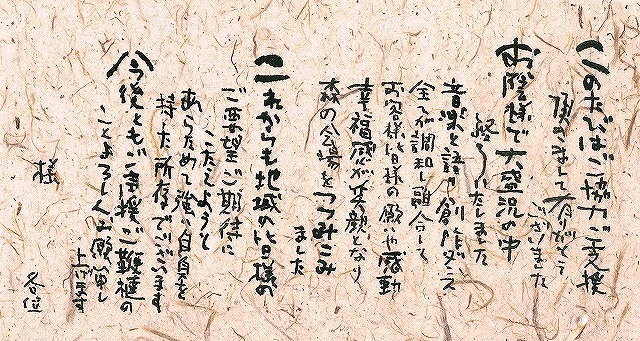 このたびはご協力ご支援
頂きまして有がとう
ございました
お陰様で大盛況の中
終了いたしました
音楽と語り創作ダンス
全てが調和し融合して
お客様皆様の願いや感動
幸福感が笑顔となり
森の会場をつつみこみ
ました
これからも地域の皆様の
ご要望ご期待に
こたえようと
あらためて強い自身を
持った所存でございます
今後ともご支援ご鞭撻の
ことよろしくお願い申し
上げます
様
各位